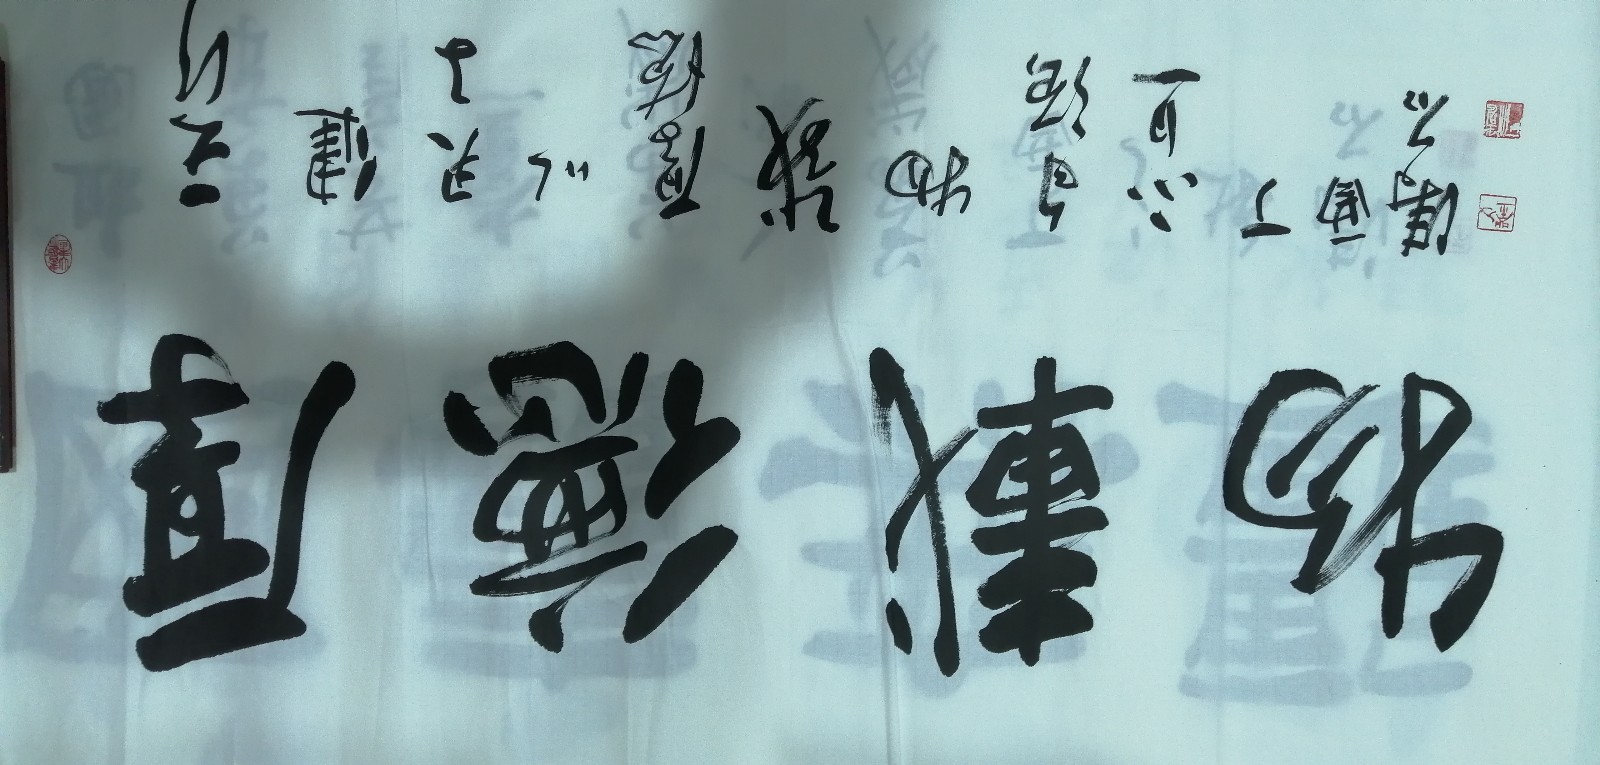 厚德載物
天行
健
君子
以
厚德
載
物
自强
不息
丁
酉
濤石